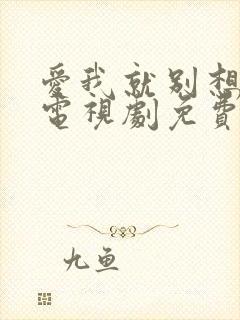 愛我就別想
電視劇免費
九鱼